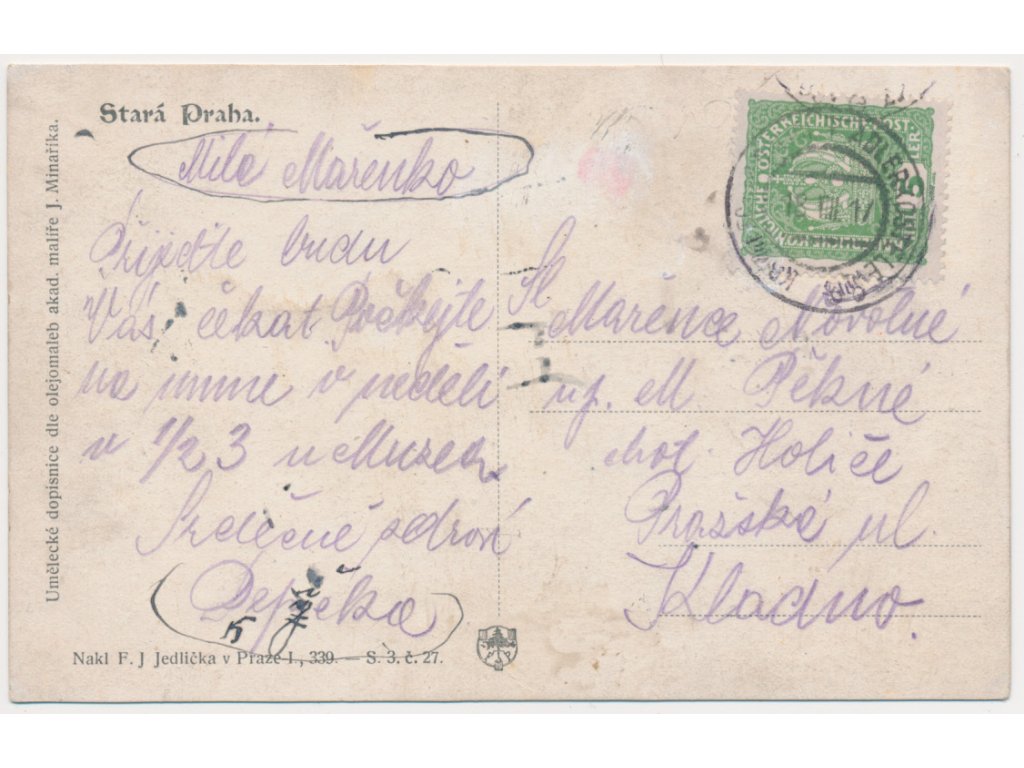 Stará Praha.
Milá Mařenko
Přijeďte budu
Vás čekat Počkejte
na mne v neděli
v 1/2 3 u Muzea
Srdečně zdraví
Pepička
Nakl F. J Jedlička v Praze-I., 339. — S. 3. č. 27.
Umělecké dopisnice dle olejomaleb akad. malíře J. Minaříka.
Sl
Mařence Novotné
up. M. Pěkné
hol. Holiče
Pražská ul.
Kladno.
KAISERLICHE KÖNIGLICHE ÖSTERREICHISCHE POST
5 HELLER
18 VIII 17